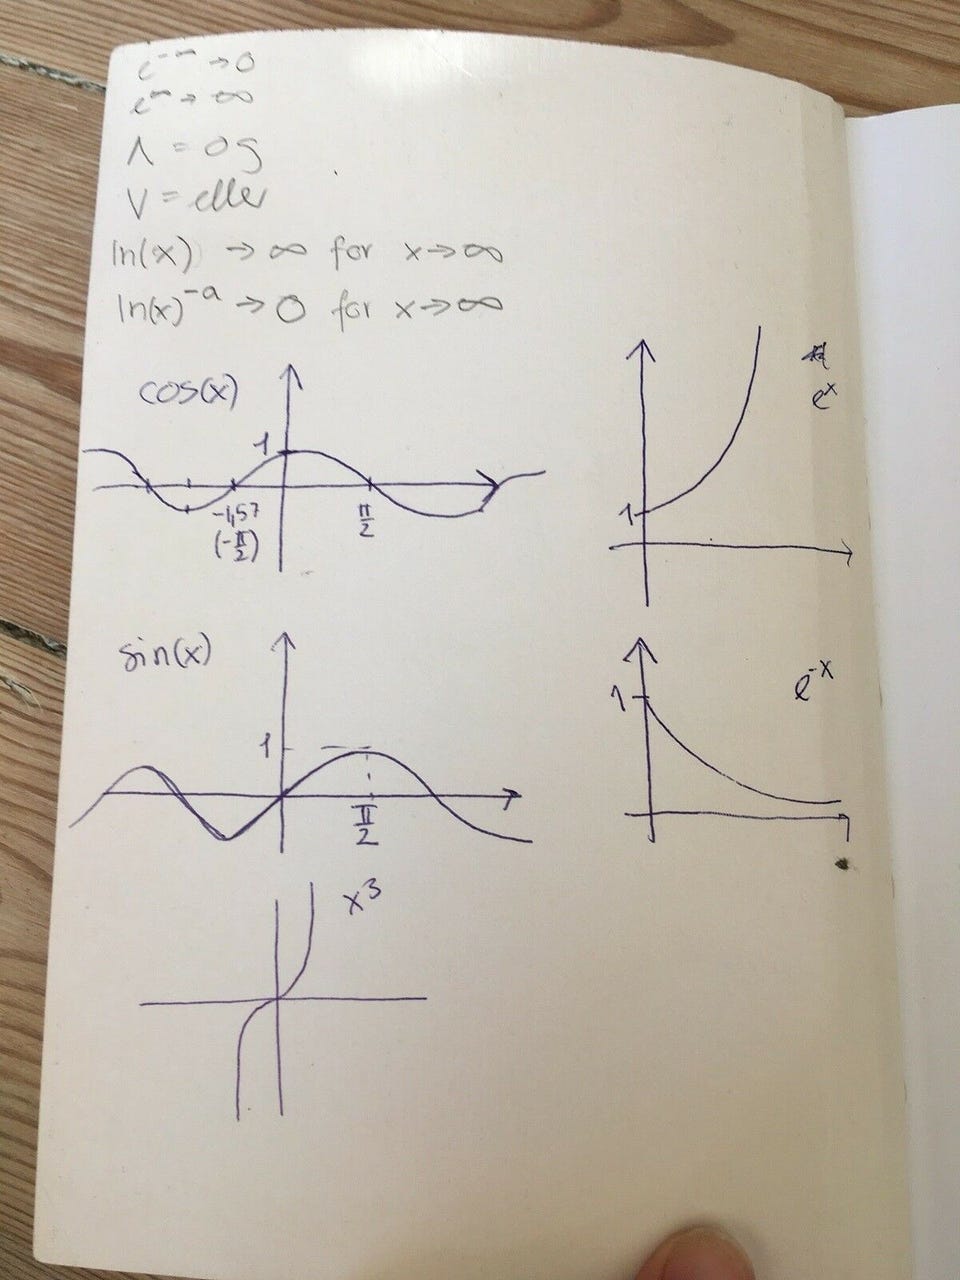 e^-∞ → 0
e^∞ → ∞
Λ = og
V = eller
ln(x) → ∞ for x → ∞
ln(x)^-a → 0 for x → ∞
cos(x)
1
-1,57
(-π/2)
π/2
e^x
1
sin(x)
1
π/2
e^-x
1
x^3